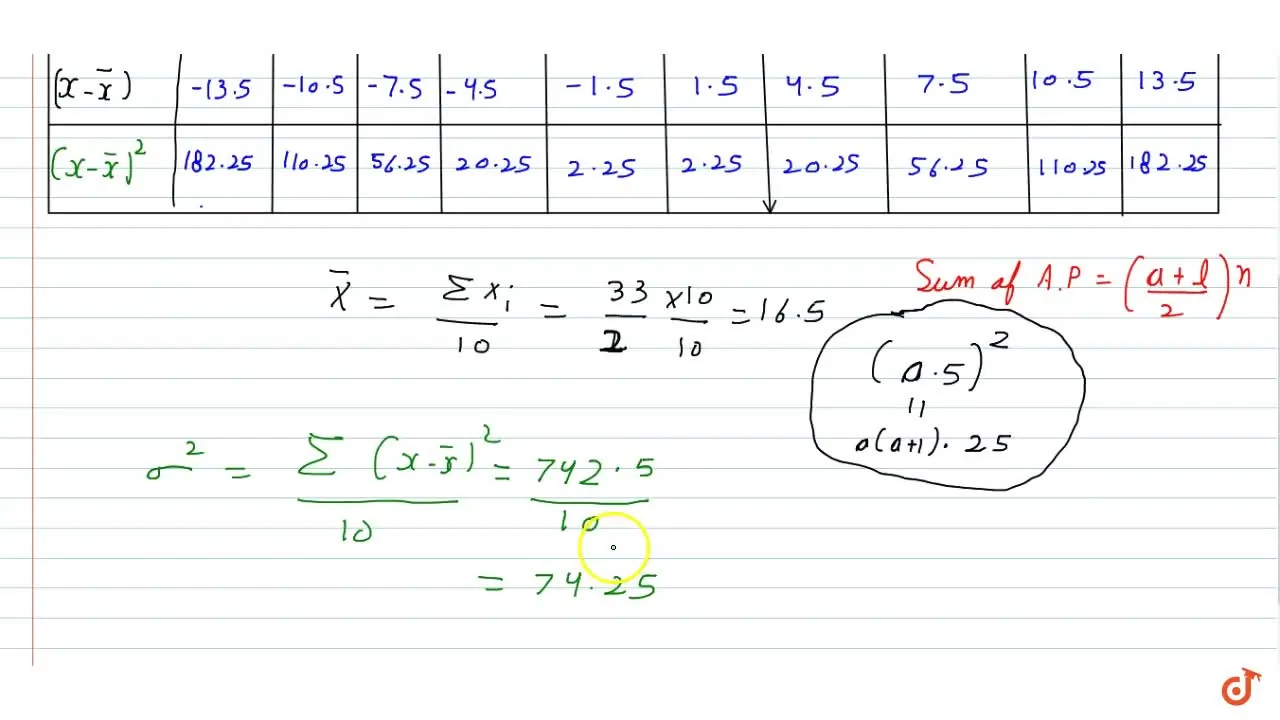 (x-x̄) -13.5 -10.5 -7.5 -4.5 -1.5 1.5 4.5 7.5 10.5 13.5
(x-x̄)² 182.25 110.25 56.25 20.25 2.25 2.25 20.25 56.25 110.25 182.25
x̄ = Σxi/10 = 33/2 × 10/10 = 16.5
Sum of A.P = (a+l/2)n
(a.5)²
||
a(a+1).25
σ² = Σ(x-x̄)²/10 = 742.5/10
= 74.25